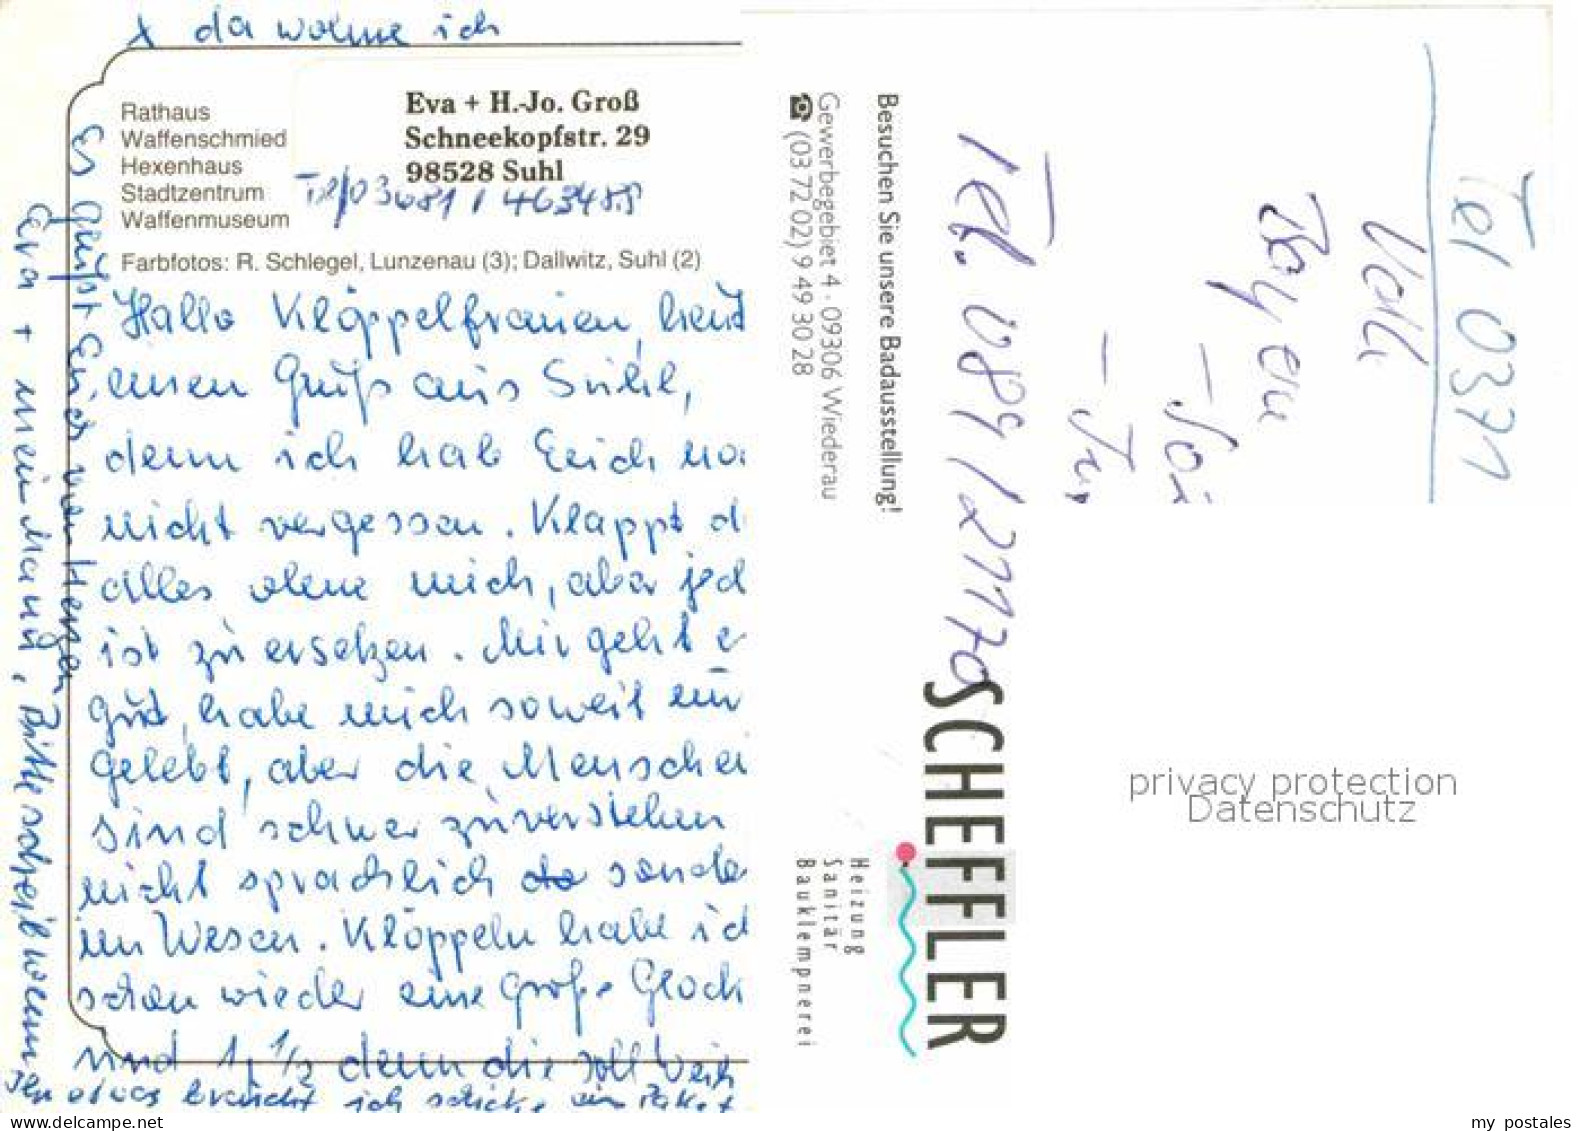 x da wohne ich
Rathaus
Waffenschmied
Hexenhaus
Stadtzentrum
Waffenmuseum
Eva + H.-Jo. Groß
Schneekopfstr. 29
98528 Suhl
Tel/03681 / 463485
Farbfotos: R. Schlegel, Lunzenau (3); Dallwitz, Suhl (2)
Hallo Klöppelfrauen, heut
einen Gruß aus Suhl,
denn ich hab Euch no
nicht vergessen. Klappt d
alles ohne mich, aber jed
ist zu ersetzen. Mir geht e
gut, habe mich soweit ein
gelebt, aber die Menschen
sind schwer zuverstehen
nicht sprachlich sonde
im Wesen. Klöppeln habe ich
schon wieder eine große Glock
und 1 1/2 denn die soll
etwas braucht ich schicke ein Paket
Es grüßt Euch von Herzen
Eva + mein Mann, Bitte schreibt wenn
Ihr
Besuchen Sie unsere Badausstellung!
Gewerbegebiet 4 · 09306 Wiederau
☎ (03 72 02) 9 49 30 28
SCHEFFLER
Heizung
Sanitär
Bauklempnerei
Tel 0371
Bayern
Tel. 089 / 21170
privacy protection
Datenschutz
www.delcampe.net
my postales